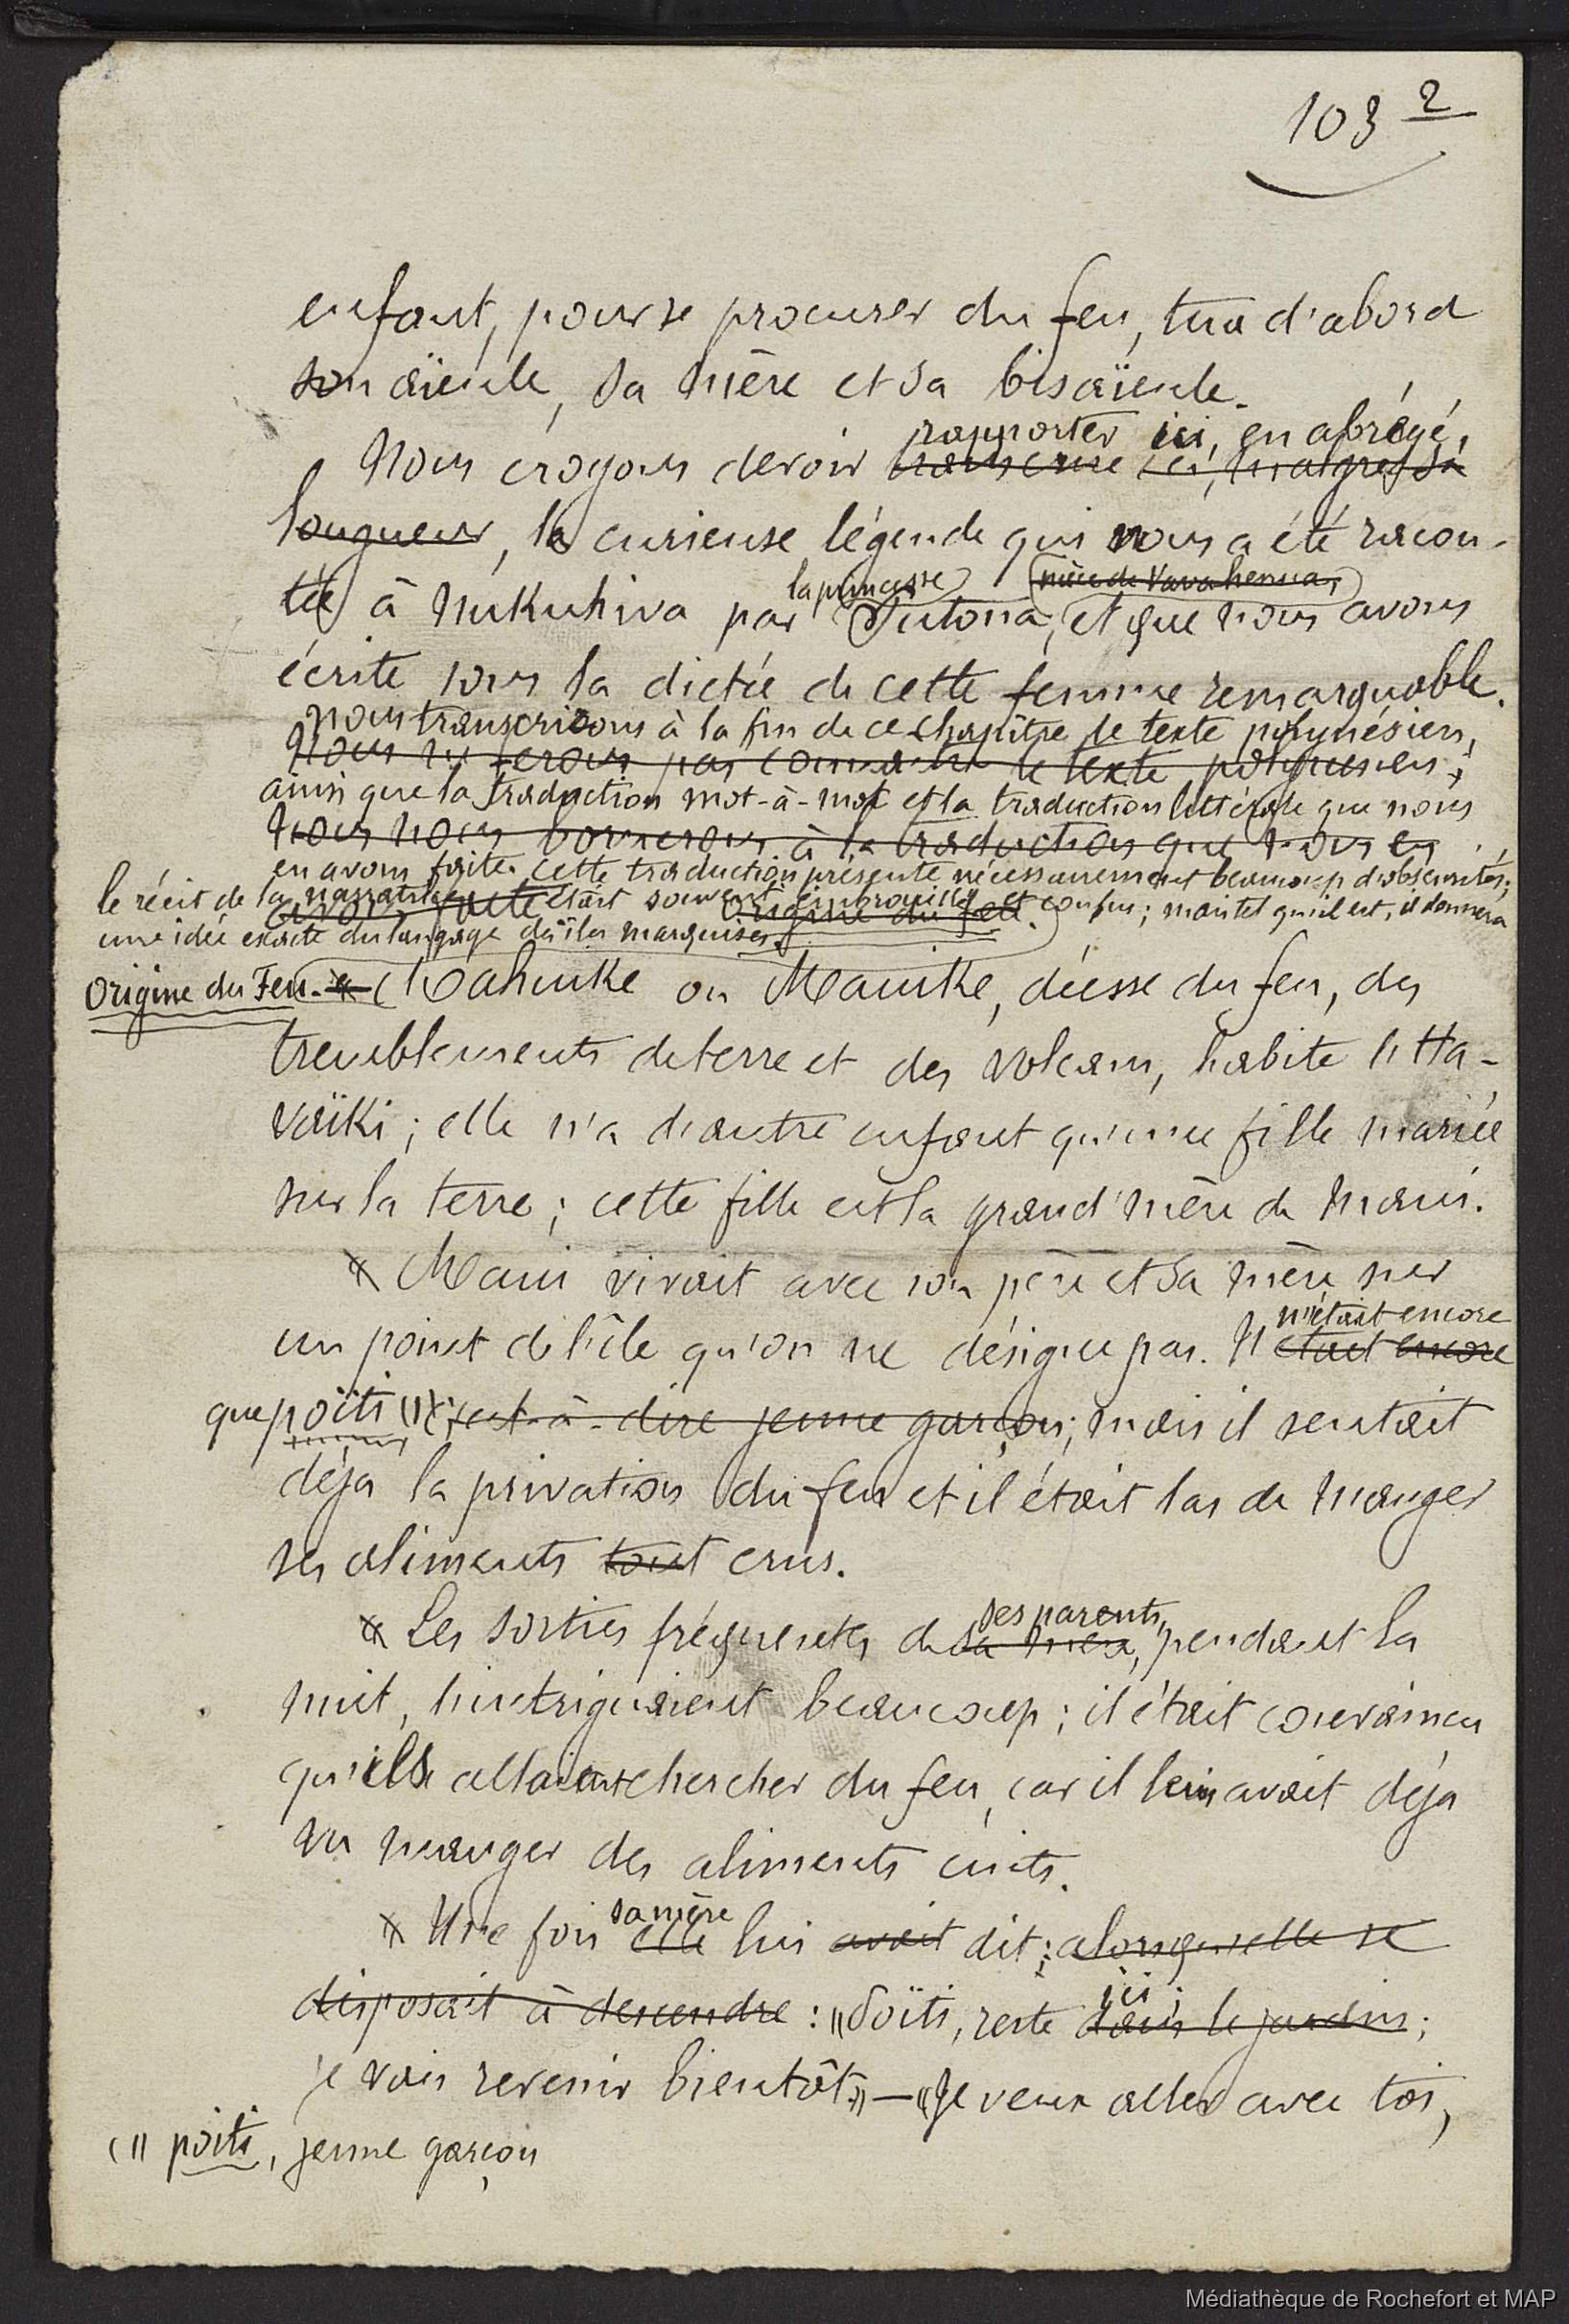 103 2
enfant, pour se procurer du feu, tua d'abord
son aïeule, sa mère et sa bisaïeule.
rapporter ici, en abrégé,
Nous croyons devoir transcrire ici, malgré sa
longueur, la curieuse légende qui nous a été racon-
la princesse (nièce de Vavahenua,)
tée à Nukuhiva par et que nous avons
écrite sous la dictée de cette femme remarquable.
nous transcrivons à la fin de ce chapitre le texte polynésien,
Nous ne ferons pas connaître le texte polynésien;
ainsi que la traduction mot-à-mot et la traduction littérale que nous
nous nous bornerons à la traduction que nous en
en avons faite. cette traduction présente nécessairement beaucoup d'obscurités;
le récit de la narratrice étant souvent embrouillé et confus; mais tel qu'il est, il donnera
avons faite Origine du feu.
une idée exacte du langage des îles marquises.
Origine du Feu. Mahuike ou Mauike, déesse du feu, des
tremblements de terre et des volcans, habite l'Ha-
vaïki; elle n'a d'autre enfant qu'une fille mariée
sur la terre; cette fille est la grand'mère de Maui.
Maui vivait avec son père et sa mère sur
n'était encore
un point de l'île qu'on ne désigne pas. Il était encore
que poïti (1) c'est-à-dire jeune garçon; mais il sentait
déja la privation du feu et il était las de manger
ses aliments tout crus.
ses parents,
Les sorties fréquentes de sa mère, pendant la
nuit, l'intriguaient beaucoup; il était convaincu
qu'ils allaient chercher du feu, car il leur avait déja
vu manger des aliments cuits.
sa mère
Une fois elle lui avait dit; alors qu'elle se
ici;
disposait à descendre : "Poïti, reste dans le jardin;
je vais revenir bientôt." — "Je veux aller avec toi,
(1) poïti, jeune garçon
Médiathèque de Rochefort et MAP